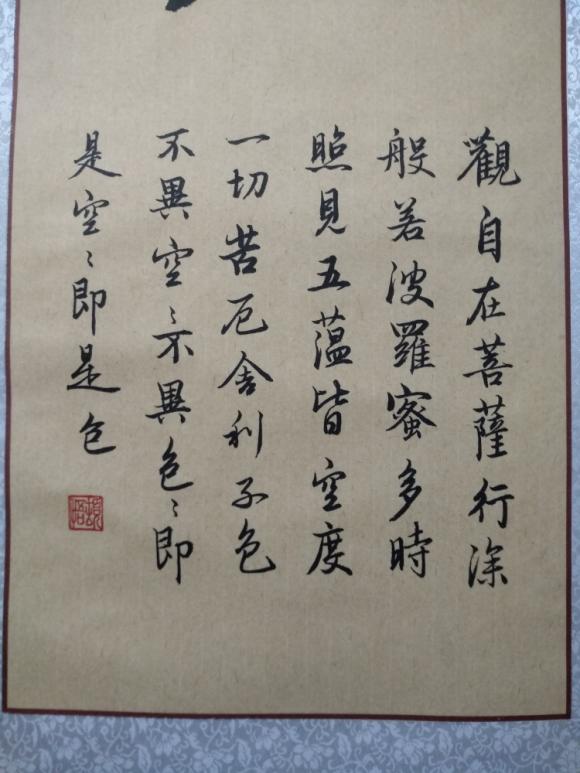 觀自在菩薩行深
般若波羅蜜多時
照見五蕴皆空度
一切苦厄舍利子色
不異空〻不異色〻即
是空〻即是色